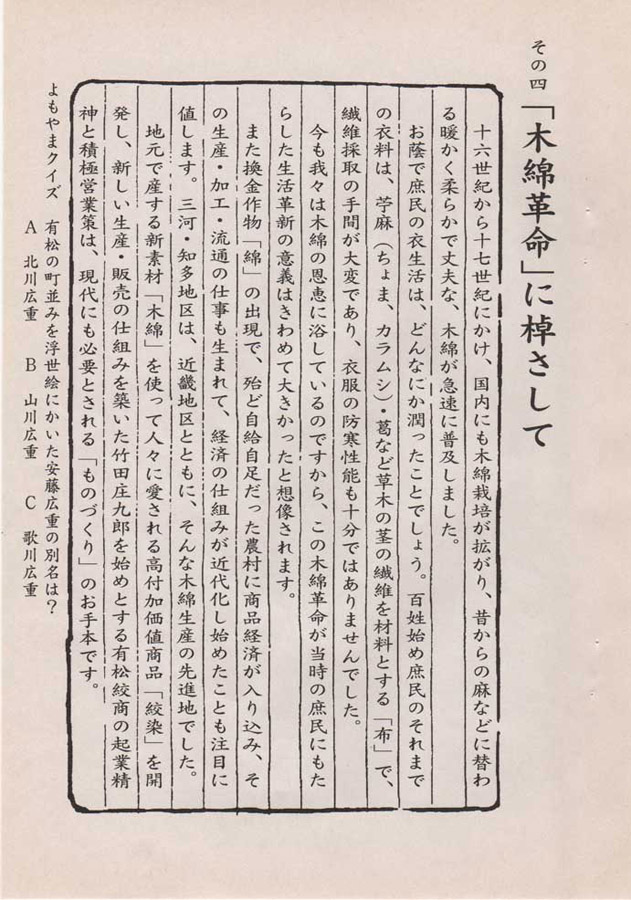 その四
「木綿革命」に棹さして
十六世紀から十七世紀にかけ、国内にも木綿栽培が拡がり、昔からの麻などに替わ
る暖かく柔らかで丈夫な、木綿が急速に普及しました。
お蔭で庶民の衣生活は、どんなにか潤ったことでしょう。百姓始め庶民のそれまで
の衣料は、苧麻（ちょま、カラムシ）・葛など草木の茎の繊維を材料とする「布」で、
繊維採取の手間が大変であり、衣服の防寒性能も十分ではありませんでした。
今も我々は木綿の恩恵に浴しているのですから、この木綿革命が当時の庶民にもた
らした生活革新の意義はきわめて大きかったと想像されます。
また換金作物「綿」の出現で、殆ど自給自足だった農村に商品経済が入り込み、そ
の生産・加工・流通の仕事も生まれて、経済の仕組みが近代化し始めたことも注目に
値します。三河・知多地区は、近畿地区とともに、そんな木綿生産の先進地でした。
地元で産する新素材「木綿」を使って人々に愛される高付加価値商品「絞染」を開
発し、新しい生産・販売の仕組みを築いた竹田庄九郎を始めとする有松絞商の起業精
神と積極営業策は、現代にも必要とされる「ものづくり」のお手本です。
よもやまクイズ　有松の町並みを浮世絵にかいた安藤広重の別名は？
A　北川広重　　B　山川広重　　C　歌川広重